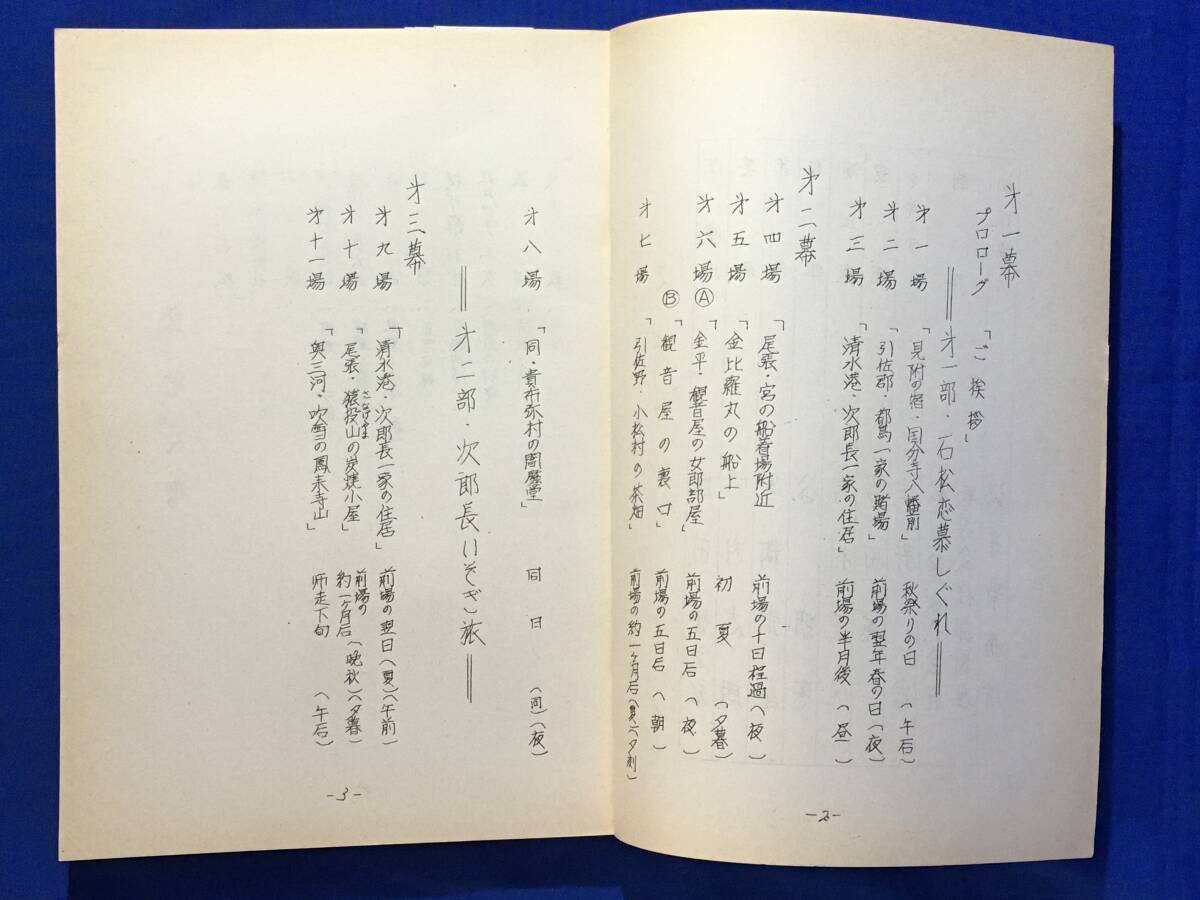 才一幕
プロローグ 「ご挨拶」
══才一部・石松恋慕しぐれ══
才一場 「見附の宿・国分寺八幡前」 秋祭りの日 (午后)
才二場 「引佐郡・都鳥一家の賭場」 前場の翌年春の日(夜)
才三場 「清水港・次郎長一家の住居」 前場の半月後 (昼)
才二幕
才四場 「尾張・宮の船着場附近 前場の十日程過(夜)
才五場 「金比羅丸の船上」 初夏 (夕暮)
才六場 Ⓐ 「金平・観音屋の女郎部屋」 前場の五日后 (夜)
Ⓑ 「観音屋の裏口」 前場の五日后 (朝)
才七場 「引佐野・小松村の茶畑」 前場の約一ヶ月后(夏)(夕刻)
-2-
才八場 「同・貴布弥村の閻魔堂」 同日 (同)(夜)
══才二部・次郎長いそぎ旅══
才三幕
才九場 「清水港・次郎長一家の住居」 前場の翌日(夏)(午前)
才十場 「尾張・猿投山の炭焼小屋」 前場の約一ヶ月后(晩秋)(夕暮)
さなげやま
才十一場 「奥三河・吹雪の鳳来寺山」 师走下旬 (午后)
-3-